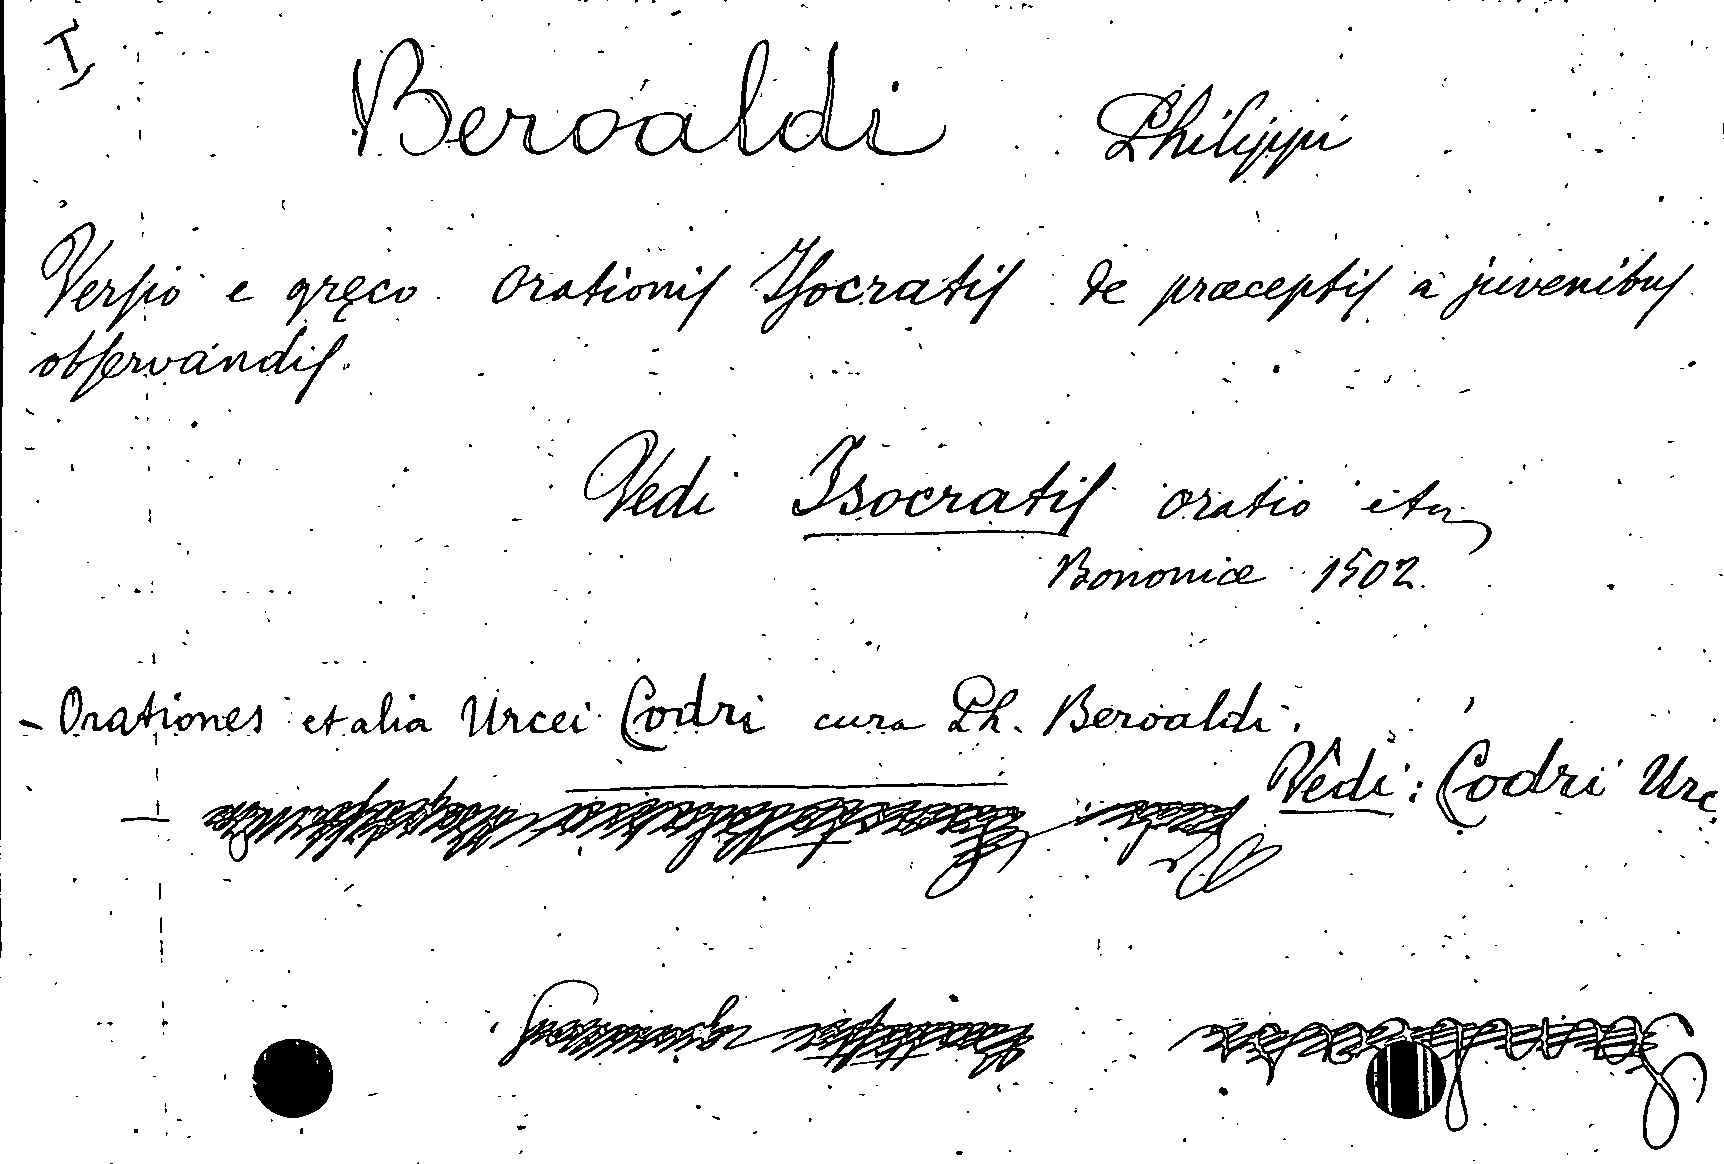 I
Beroaldi Philippi
Verſio e gręco orationiſ Iſocratiſ de præceptiſ a juvenibuſ
obſervandiſ.
Vedi Isocratiſ oratio etc
Bononiæ 1502.
- Orationes et alia Urcei Codri cura Ph. Beroaldi.
Vedi: Codri Urc.